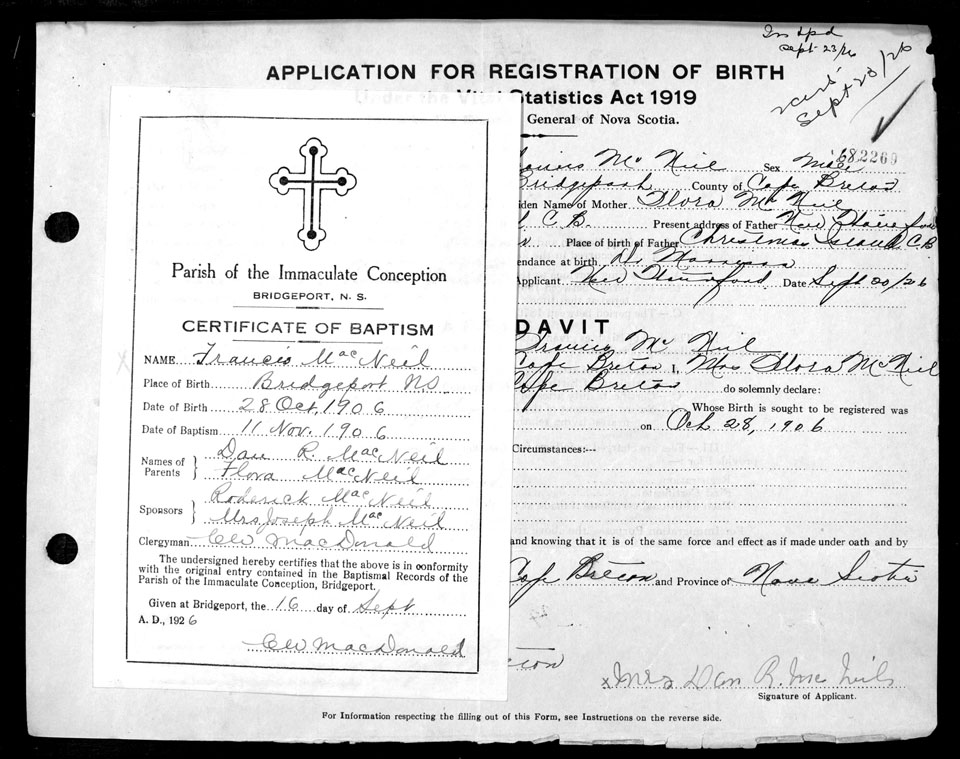 In dpd
Sept-23/26
Sept 23/26
APPLICATION FOR REGISTRATION OF BIRTH
Under the Vital Statistics Act 1919
General of Nova Scotia.
Mc Neil Sex Male 682260
Bridgeport County of Cape Breton
iden Name of Mother Flora Mc Neil
C B. Present address of Father New
Place of birth of Father Christmas Island C B
endance at birth Dr
Applicant New Date Sept 20/26
DAVIT
Francis Mc Neil
Cape Breton I, Mrs Flora Mc Neil
Cape Breton do solemnly declare:
Whose Birth is sought to be registered was
on Oct 28, 1906
Circumstances:---
and knowing that it is of the same force and effect as if made under oath and by
Cape Breton and Province of Nova Scotia
eton
x Mrs Dan R. Mc Neil
Signature of Applicant.
For Information respecting the filling out of this Form, see Instructions on the reverse side.
Parish of the Immaculate Conception
BRIDGEPORT, N. S.
CERTIFICATE OF BAPTISM
NAME Francis MacNeil
Place of Birth Bridgeport NS
Date of Birth 28 Oct, 1906
Date of Baptism 11 Nov. 1906
Names of Parents } Dan R. MacNeil
Flora MacNeil
Sponsors } Roderick MacNeil
Mrs Joseph MacNeil
Clergyman MacDonald
The undersigned hereby certifies that the above is in conformity
with the original entry contained in the Baptismal Records of the
Parish of the Immaculate Conception, Bridgeport.
Given at Bridgeport, the 16 day of Sept
A. D., 1926
MacDonald